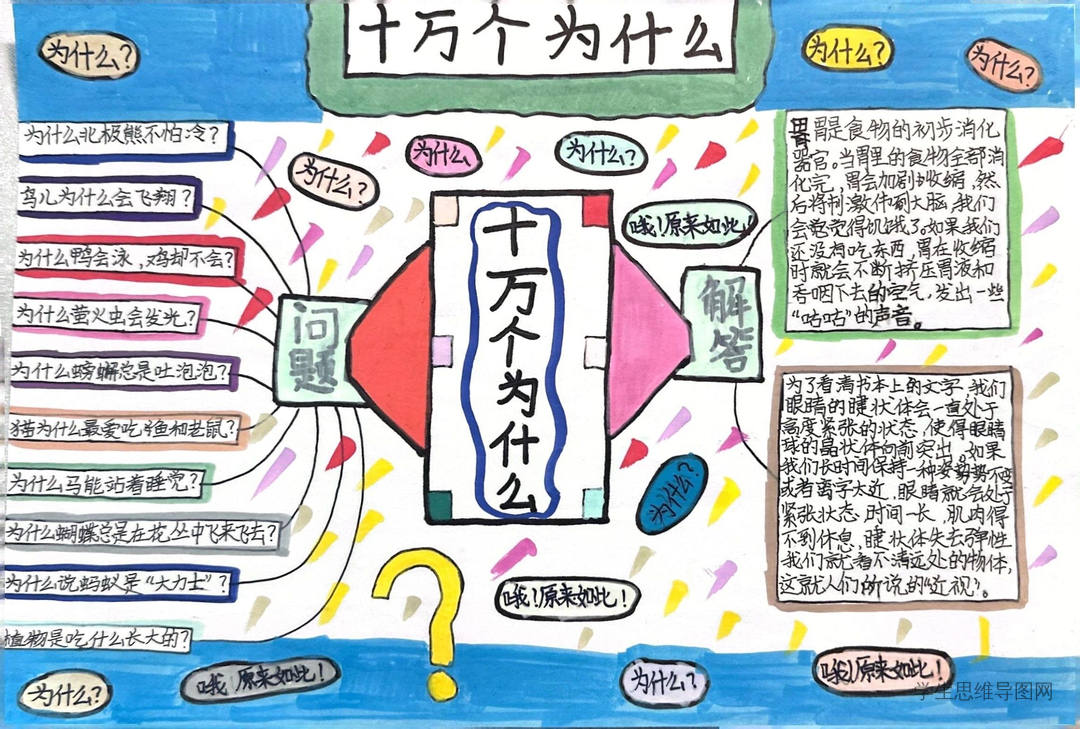 十万个为什么
为什么?
为什么?
为什么?
为什么北极熊不怕冷?
鸟儿为什么会飞翔?
为什么鸭会泳,鸡却不会?
为什么萤火虫会发光?
为什么螃蟹总是吐泡泡?
猫为什么最爱吃鱼和老鼠?
为什么马能站着睡觉?
为什么蝴蝶总是在花丛中飞来飞去?
为什么说蚂蚁是“大力士”?
植物是吃什么长大的?
问题
为什么?
为什么
为什么?
十万个为什么
哦!原来如此!
解答
胃是食物的初步消化
器官。当胃里的食物全部消
化完,胃会加剧收缩,然
后将刺激传到大脑,我们
会感觉得饥饿了。如果我们
还没有吃东西,胃在收缩
时就会不断挤压胃液和
吞咽下去的空气,发出一些
“咕咕”的声音。
为了看清书本上的文字,我们
眼睛的睫状体会一直处于
高度紧张的状态,使得眼睛
球的晶状体向前突出。如果
我们长时间保持一种姿势不变
或者离字太近,眼睛就会处于
紧张状态,时间一长,肌肉得
不到休息,睫状体失去弹性
我们就看不清远处的物体,
这就人们所说的“近视”。
为什么?
哦!原来如此!
?
为什么?
哦 原来如此!
为什么?
哦!原来如此!
学生思维导图网